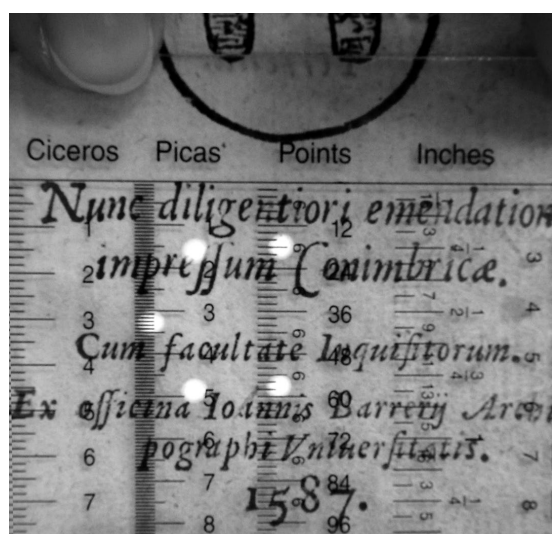 Ciceros Picas Points Inches
Nunc diligentiori emendation
impreſſum Conimbricæ.
Cum facultate Inquiſitorum.
Ex officina Ioánnis Barrerij Archi
pographi Vniuerſitatis.
1587.
1 2 3 4 5 6 7
1 2 3 4 5 6 7 8
12 24 36 48 60 72 84 96